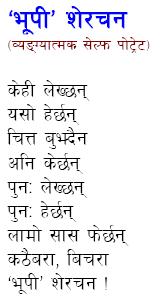 ‘भूपी’ शेरचन
(व्यङ्ग्यात्मक सेल्फ पोट्रेट)
केही लेख्छन्
यसो हेर्छन्
चित्त बुझ्दैन
अनि केर्छन्
पुन: लेख्छन्
पुन: हेर्छन्
लामो सास फेर्छन्
कठैबरा, बिचरा
‘भूपी’ शेरचन !